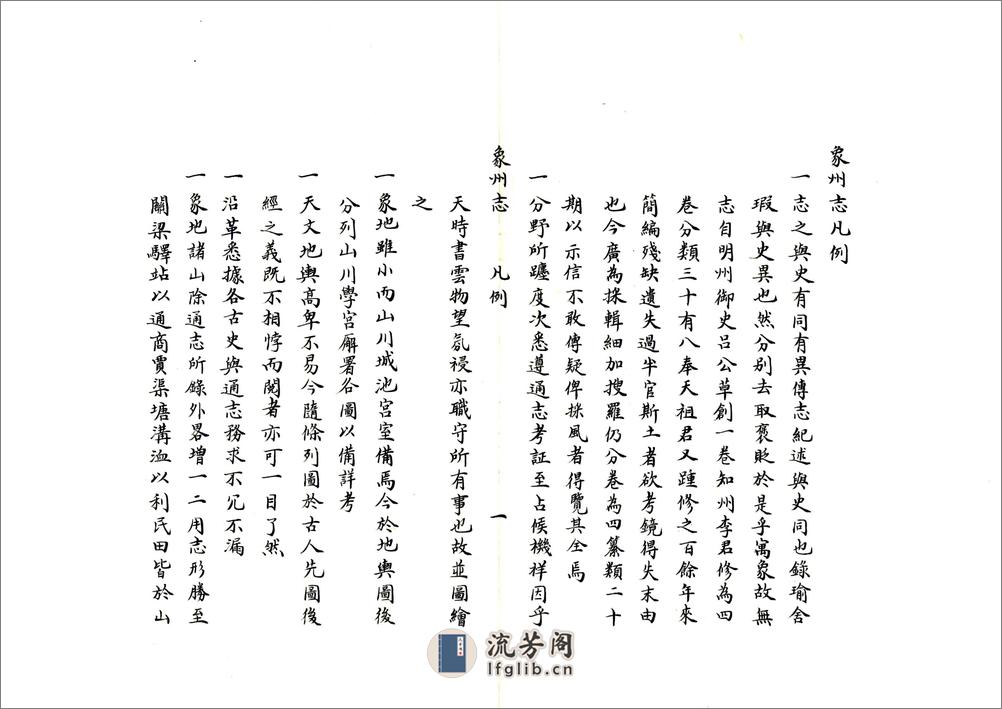 象州志凡例
一志之與史有同有異傳志紀述與史同也錄瑜舍
瑕與史異也然分别去取褒貶於是乎寓象故無
志自明州御史呂公草創一卷知州李君修為四
卷分類三十有八奉天祖君又踵修之百餘年來
簡編殘缺遺失過半官斯土者欲考鏡得失末由
也今廣為採輯細加搜羅仍分卷為四纂類二十
期以示信不敢傳疑俾採風者得覽其全焉
一分野所躔度次悉遵通志考証至占候機祥因乎
象州志 凡例 一
天時書雲物望氛祲亦職守所有事也故並圖繪
之
一象地雖小而山川城池宫室備焉今於地輿圖後
分列山川學宫廨署各圖以備詳考
一天文地輿高卑不易今隨條列圖於古人先圖後
經之義既不相悖而閱者亦可一目了然
一沿革悉據各古史與通志務求不冗不漏
一象地諸山除通志所錄外畧增一二用志形勝至
關梁驛站以通商賈渠塘溝洫以利民田皆於山
流芳阁
lfglib.cn